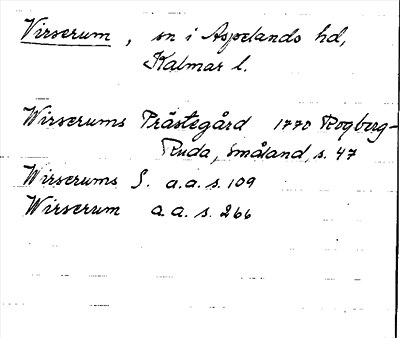 Virserum, sn i Aspelands hd,
Kalmar l.
Wirserums Prästegård 1770 Rogberg-
Ruda, Småland, s. 47
Wirserums S. a.a. s. 109
Wirserum a.a. s. 266